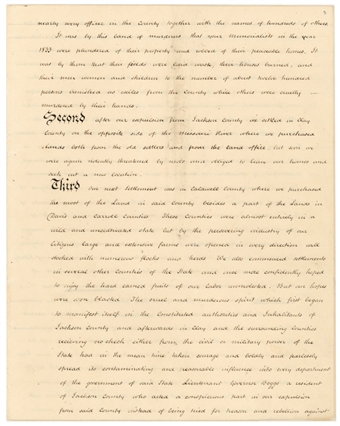 nearly every officer in the County together with the names of hundreds of others
It was by this band of murderers that your memorialists in the year
1833 were plundered of their property and robbed of their peaceable homes. It
was by them that their fields were laid waste, their houses burned, and
their men women and children to the number of about twelve hundred
persons banished as exiles from the County while others were cruelly
murdered by their hands.
Second after our expulsion from Jackson County we settled in Clay
County on the opposite side of the Missouri River where we purchased
lands both from the old settlers and from the land office but soon we
were again violently threatened by mobs and obliged to leave our homes and
seek out a new location.
Third Our next settlement was in Caldwell County where we purchased
the most of the Land in said County besides a part of the Lands in
Daviess and Carroll Counties These Counties were almost entirely in a
wild and uncultivated state but by the persevering industry of our
Citizens large and extensive farms were opened in every direction well
stocked with numerous flocks and herds We also commenced settlements
in several other Counties of the State and once more confidently hoped
to enjoy the hard earned fruits of our labor unmolested But our hopes
were soon blasted The cruel and murderous spirit which first began
to manifest itself in the Constituted authorities and Inhabitants of
Jackson County and afterwards in Clay and the surrounding Counties
receiving no check either from the civil or military power of the
State had in the mean time taken courage and boldly and fearlessly
spread its contaminating and treasonable influence into every department
of the government of said State Lieutenant Governor Boggs a resident
of Jackson County who acted a conspicuous part in our expulsion
from said County instead of being tried for treason and rebellion against